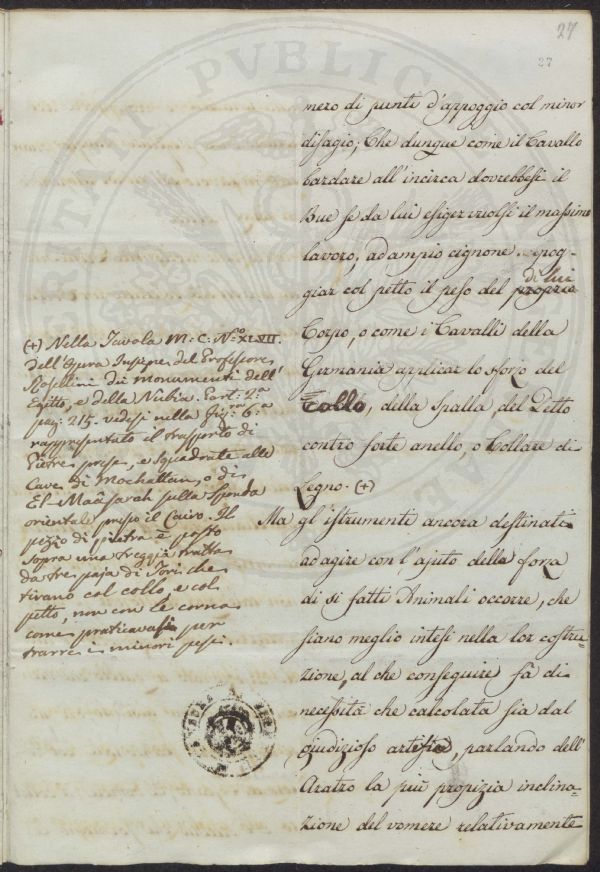 27
27
mero di punti d'appoggio col minor
disagio; Che dunque come il Cavallo
bardare all'incirca dovrebbesi il
Bue se da lui esiger vuolsi il massimo
lavoro, ad ampio cignone appog-
giar col petto il peso del proprio di lui
Corpo, o come i Cavalli della
Germania applicar lo sforzo del
Collo, della Spalla, del Petto
contro forte anello, o Collare di
Legno. (+)
Ma gl'istrumenti ancora destinati
ad agire con l'ajuto della forza
di si fatti Animali occorre, che
siano meglio intesi nella lor costru-
zione, al che conseguire fà di
necessità che calcolata sia dal
giudizioso artefice, parlando dell'
Aratro la più propizia inclina-
zione del vomere relativamente
(+) Nella Tavola M: C: N.º XLVII.
dell'Opera Insigne del Professore
Rosellini dei Monumenti dell'
Egitto, e della Nubia. Part: 2:
pag: 215. vedesi nella Fig: 6:
rappresentato il trasporto di
Pietre prese, e squadrate alle
Cave di Mochattan, o di
El-Maâsarah sulla sponda
orientale presso il Cairo. Il
pezzo di pietra è posto
sopra una treggia tratta
da tre paja di Tori che
tirano col collo, e col
petto, non con le corna
come praticavasi per
trarre i minori pesi.